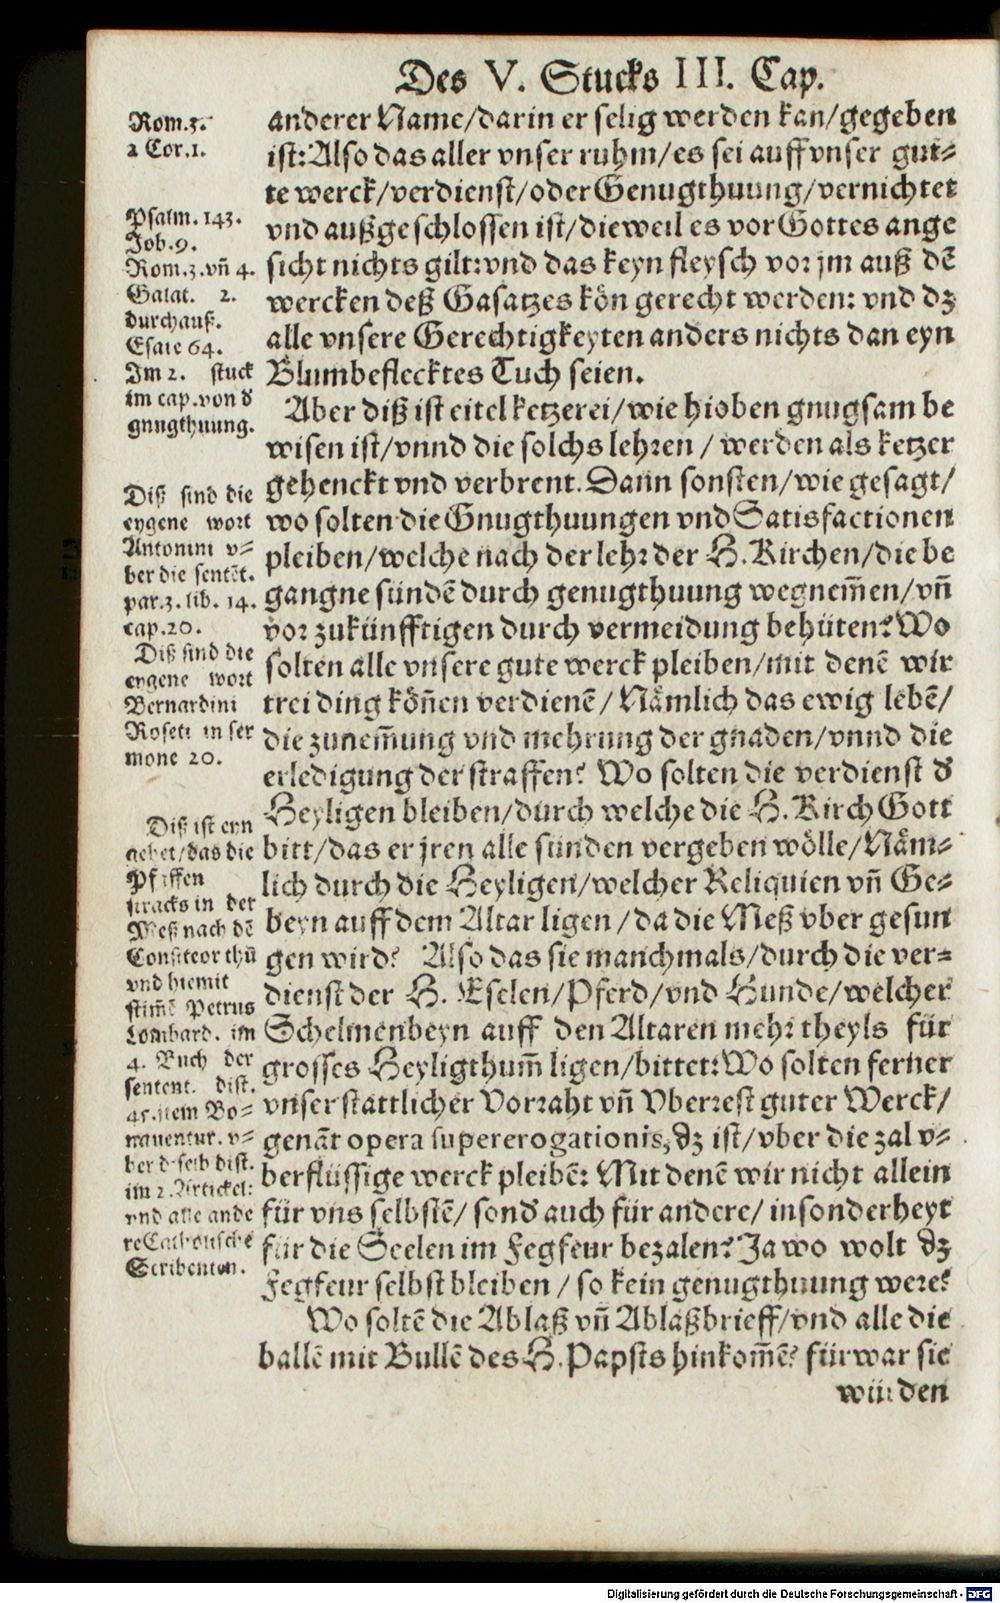 Des V. Stucks III. Cap.
Rom.3.
2 Cor.1.
Psalm. 143.
Job.9.
Rom.3.vñ 4.
Galat. 2.
durchauß.
Esaie 64.
Im 2. stuck
im cap.von d̕
gnugthuung.
Diß sind die
eygene wort
Antonini v⸗
ber die sentẽt.
par.3. lib. 14.
cap.20.
Diß sind die
eygene wort
Bernardini
Roseti in ser
mone 20.
Diß ist eyn
gebet/das die
Pfaffen
stracks in der
Meß nach dẽ
Confiteor thũ
vnd hiemit
stim̃ẽ Petrus
Lombard. im
4. Buch der
sentent. dist.
45.item Bo⸗
nauentur. v⸗
ber d selb dist.
im 2.Artickel:
vnd alle ande
re Catholische
Scribenten.
anderer Name/darin er selig werden kan/gegeben
ist: Also das aller vnser ruhm/es sei auff vnser gut⸗
te werck/verdienst/oder Genugthuung/vernichtet
vnd außgeschlossen ist/dieweil es vor Gottes ange
sicht nichts gilt: vnd das keyn fleysch vor jm auß dẽ
wercken deß Gasatzes kön gerecht werden: vnd dz
alle vnsere Gerechtigkeyten anders nichts dan eyn
Blumbeflecktes Tuch seien.
Aber diß ist eitel ketzerei/wie hioben gnugsam be
wisen ist/vnnd die solchs lehren / werden als ketzer
gehenckt vnd verbrent. Dann sonsten/wie gesagt/
wo solten die Gnugthuungen vnd Satisfactionen
pleiben/welche nach der lehr der H. Kirchen/die be
gangne sündẽ durch genugthuung wegnem̃en/vñ
vor zukünfftigen durch vermeidung behüten? Wo
solten alle vnsere gute werck pleiben/mit denẽ wir
trei ding köñen verdienẽ / Nämlich das ewig lebẽ/
die zunem̃ung vnd mehrung der gnaden/vnnd die
erledigung der straffen? Wo solten die verdienst d̕
Heyligen bleiben/durch welche die H. Kirch Gott
bitt/das er jren alle sünden vergeben wölle/Näm⸗
lich durch die Heyligen/welcher Reliquien vñ Ge⸗
beyn auff dem Altar ligen /da die Meß vber gesun
gen wird? Also das sie manchmals/durch die ver⸗
dienst der H. Eselen/Pferd/vnd Hunde/welcher
Schelmenbeyn auff den Altaren mehr theyls für
grosses Heyligthum̃ ligen/bittet: Wo solten ferner
vnser stattlicher Vorraht vñ Vberrest guter Werck/
genãt opera supererogationis, dz ist/vber die zal v⸗
berflüssige werck pleibẽ: Mit denẽ wir nicht allein
für vns selbstẽ/ sond̕ auch für andere/ insonderheyt
für die Seelen im Fegfeur bezalen? Ja wo wolt dz
Fegfeur selbst bleiben / so kein genugthuung were?
Wo soltẽ die Ablaß vñ Ablaßbrieff/vnd alle die
ballẽ mit Bullẽ des H. Papsts hinkom̃ẽ? fürwar sie
würden
Digitalisierung gefördert durch die Deutsche Forschungsgemeinschaft - DFG